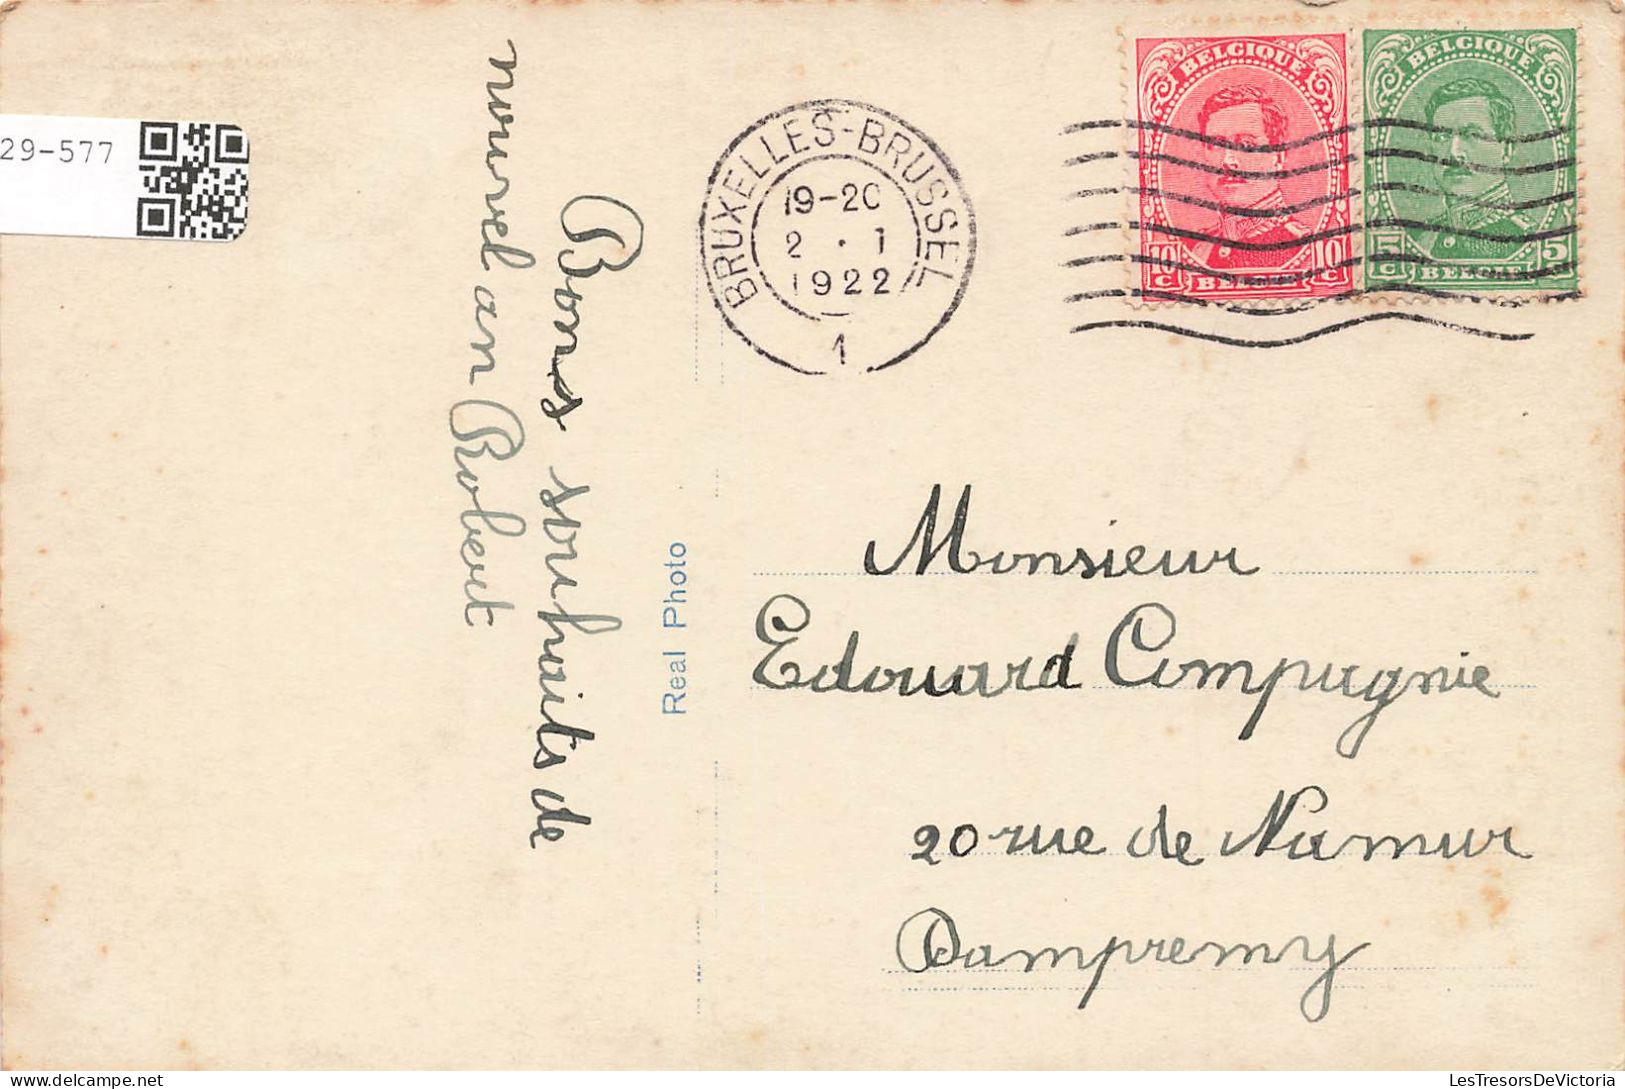 29-577
BRUXELLES-BRUSSEL
19-20
2 · 1
1922
1
BELGIQUE
10 C
10 C
BELGIE
BELGIQUE
5 C
5 C
BELGIE
Bons souhaits de
nouvel an Robert
Real Photo
Monsieur
Edouard Compagnie
20 rue de Namur
Dampremy
LesTresorsDeVictoria